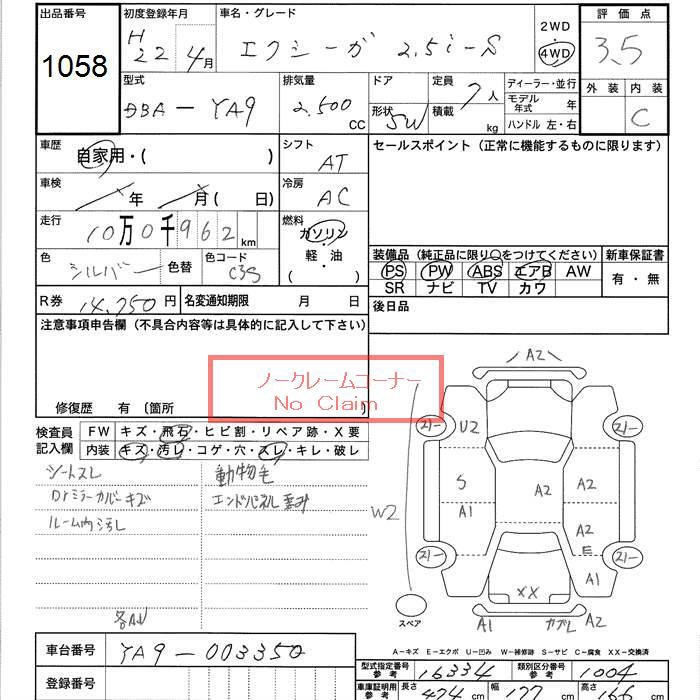 出品番号
1058
初度登録年月
H 22 4月
車名・グレード
エクシーガ 2.5i-S
2WD
・
4WD
評価点
3.5
外装 内装
C
型式
DBA-YA9
排気量
2.500 cc
ドア
形状 SW
定員 7人
積載 kg
ディーラー・並行
モデル年式 年
ハンドル 左・右
車歴
自家用・( )
シフト
AT
セールスポイント (正常に機能するものに限ります)
車検
年 月( 日)
冷房
AC
走行
10万0千962 km
燃料
ガソリン
・
軽・油
( )
色
シルバー
色替
色コード
C3S
装備品 (純正品に限り○をつけてください)
PS PW ABS エアB AW
SR ナビ TV カワ
新車保証書
有・無
R券 14,750円
名変通知期限 月 日
後日品
注意事項申告欄 (不具合内容等は具体的に記入して下さい)
ノークレームコーナー
No Claim
修復歴 有 〔箇所 〕
検査員記入欄
FW キズ・飛石・ヒビ割・リペア跡・X要
内装 キズ・汚レ・コゲ・穴・スレ・キレ・破レ
シートスレ
Drミラーカバーキズ
ルーム内汚し
動物毛
エンドパネル歪み
各AU
A2
21- U2 21-
S A2 A2
W2 A1 A2
E
21- 21-
XX A1
スペア
A1 カブレ A2
A-キズ E-エクボ U-凹み W-補修跡 S-サビ C-腐食 XX-交換済
車台番号 YA9-003350
登録番号
型式指定番号 参考 16334
類別区分番号 参考 1004
車庫証明用 参考
長さ 474cm
幅 177cm
高さ 166cm